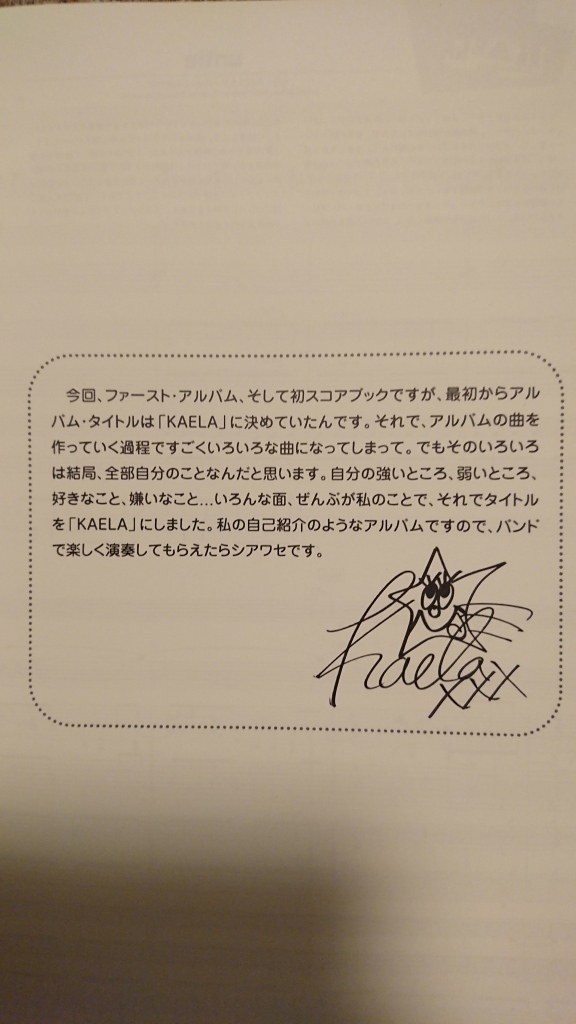 今回、ファースト・アルバム、そして初スコアブックですが、最初からアル
バム・タイトルは「KAELA」に決めていたんです。それで、アルバムの曲を
作っていく過程ですごくいろいろな曲になってしまって。でもそのいろいろ
は結局、全部自分のことなんだと思います。自分の強いところ、弱いところ、
好きなこと、嫌いなこと…いろんな面、ぜんぶが私のことで、それでタイトル
を「KAELA」にしました。私の自己紹介のようなアルバムですので、バンド
で楽しく演奏してもらえたらシアワセです。
Kaela
XXX